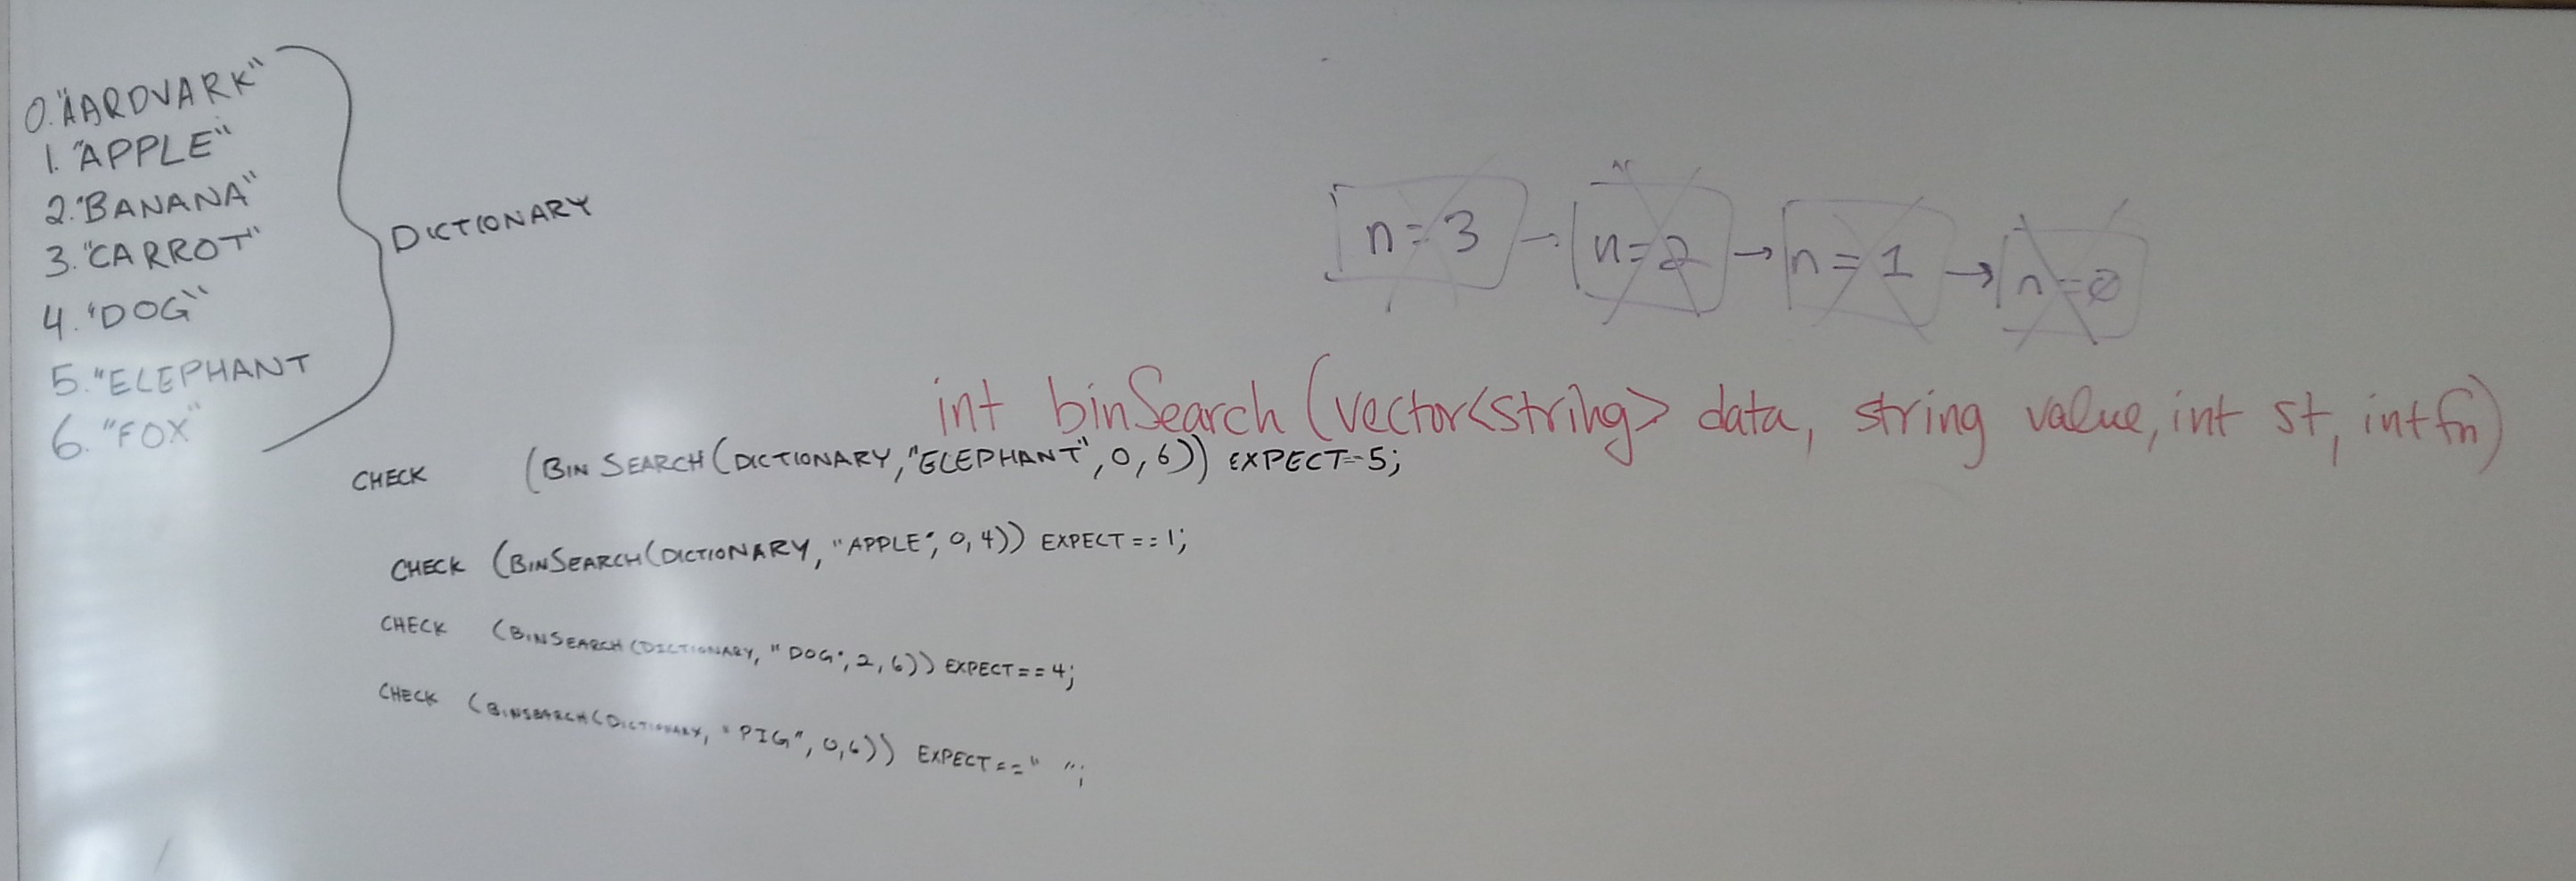 0."AARDVARK"
1. "APPLE"
2."BANANA"
3."CARROT"
4. "DOG"
5. "ELEPHANT
6. "FOX"
DICTIONARY
n=3 → n=2 → n=1 → n=0
int binSearch(vector<string> data, string value, int st, int fn)
CHECK (BIN SEARCH(DICTIONARY,"ELEPHANT",0,6)) EXPECT==5;
CHECK (BINSEARCH(DICTIONARY, "APPLE", 0,4)) EXPECT==1;
CHECK (BINSEARCH(DICTIONARY, "DOG",2,6)) EXPECT==4;
CHECK (BINSEARCH(DICTIONARY, "PIG", 0,6)) EXPECT==" ";